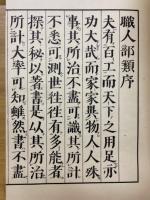 職人部類序
夫有百工而天下之用足亦
功大哉而家異物人人殊
事其所治不盡可識其所計
不悉可測世往往有多能者
探其秘以著書是以其所治
所計大率可知雖然書不盡